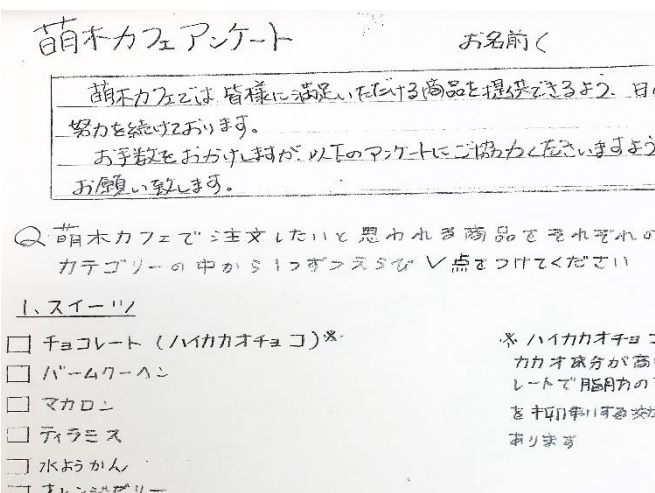 萌木カフェアンケート
お名前(
萌木カフェでは皆様に満足いただける商品を提供できるよう、日
努力を続けております。
お手数をおかけしますが、以下のアンケートにご協力くださいますよう
お願い致します。
Q 萌木カフェで注文したいと思われる商品をそれぞれの
カテゴリーの中から1つずつえらび✓点をつけてください
1、スイーツ
□ チョコレート (ハイカカオチョコ)※
□ バームクーヘン
□ マカロン
□ ティラミス
□ 水ようかん
□ オレンジゼリー
※ ハイカカオチョコ
カカオ成分が高
レートで脂肪の
を抑制する効
あります